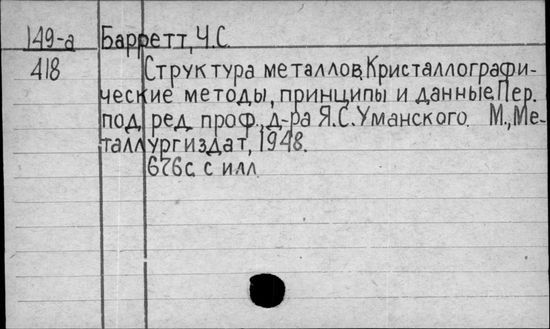 149-а Барретт, Ч.С.
418 Структура металлов. Кристаллографи-
ческие методы, принципы и данные. Пер.
под ред. проф., д-ра Я.С. Уманского. М., Ме-
таллургиздат, 1948.
676с. с илл.